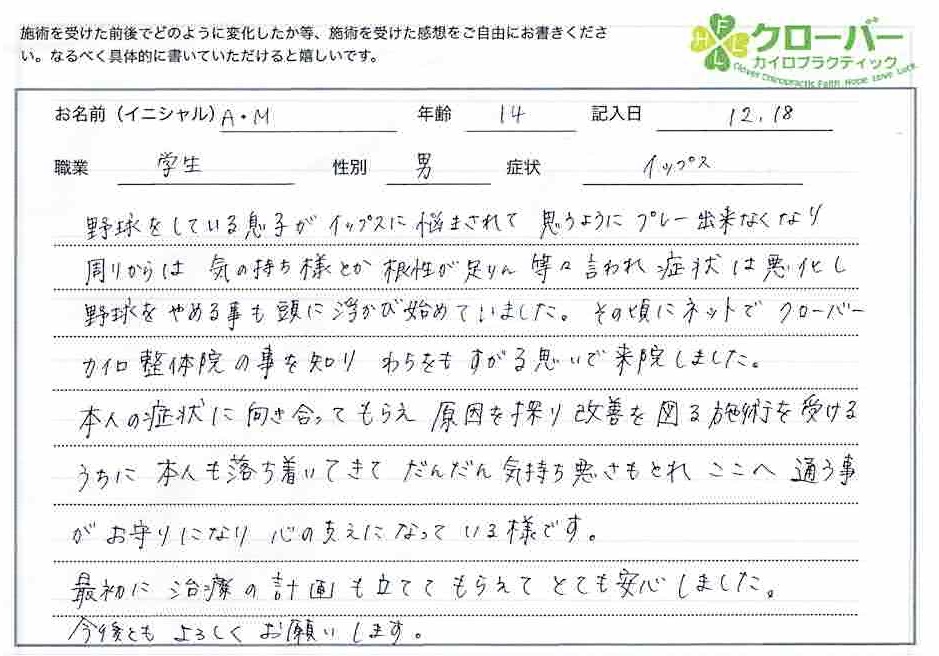 施術を受けた前後でどのように変化したか等、施術を受けた感想をご自由にお書きくださ
い。なるべく具体的に書いていただけると嬉しいです。
F
H L
L
クローバー
カイロプラクティック
Clover Chiropractic Faith Hope Love Luck
お名前（イニシャル） A・M 年齢 14 記入日 12.18
職業 学生 性別 男 症状 イップス
野球をしている息子が イップスに悩まされて 思うように プレー出来なくなり
周りからは 気の持ち様とか 根性が足りん 等々言われ 症状は悪化し
野球を やめる事も 頭に浮かび始めていました。 その頃にネットで クローバー
カイロ整体院の事を知り わらをも すがる思いで 来院しました。
本人の症状に 向き合って もらえ 原因を探り 改善を 図る施術を受ける
うちに 本人も 落ち着いてきて だんだん 気持ち悪さもとれ ここへ 通う事
が お守りになり 心の支えになって いる様です。
最初に 治療の計画も立てて もらえて とても安心しました。
今後とも よろしく お願いします。